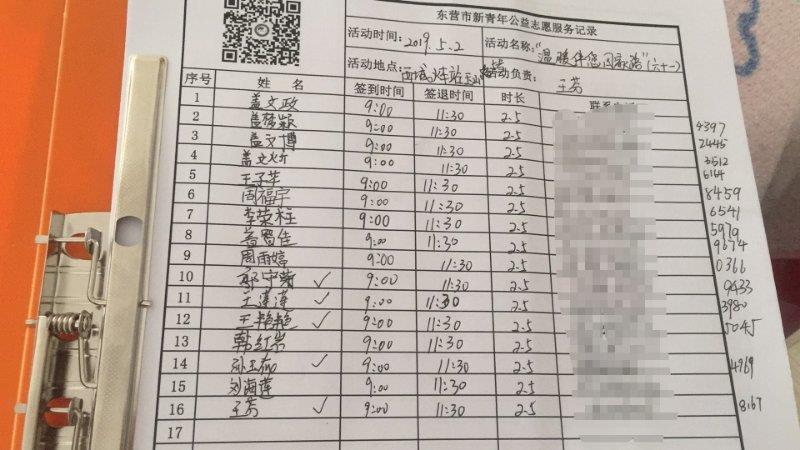 东营市新青年公益志愿服务记录
活动时间: 2019.5.2 活动名称: "温暖伴您回家路"(六十一)
活动地点: 西城火车站 活动负责: 王芳
序号 姓 名 签到时间 签退时间 时长
1 盖文政 9:00 11:30 2.5
2 盖梦颖 9:00 11:30 2.5 4397
3 盖文博 9:00 11:30 2.5 2445
4 盖文 9:00 11:30 2.5 3612
5 王子苹 9:00 11:30 2.5 6164
6 周福宇 9:00 11:30 2.5 8459
7 李荣柱 9:00 11:30 2.5 6541
8 佳 9:00 11:30 2.5 5979
9 周雨婷 9:00 11:30 2.5 9674
10 9:00 11:30 2.5 0366
11 王莲莲 9:00 11:30 2.5 9433
12 王艳艳 9:00 11:30 2.5 3980
13 韩红岩 9:00 11:30 2.5 5045
14 孙玉 9:00 11:30 2.5
15 刘海莲 9:00 11:30 2.5 4969
16 王芳 9:00 11:30 2.5 8167
17